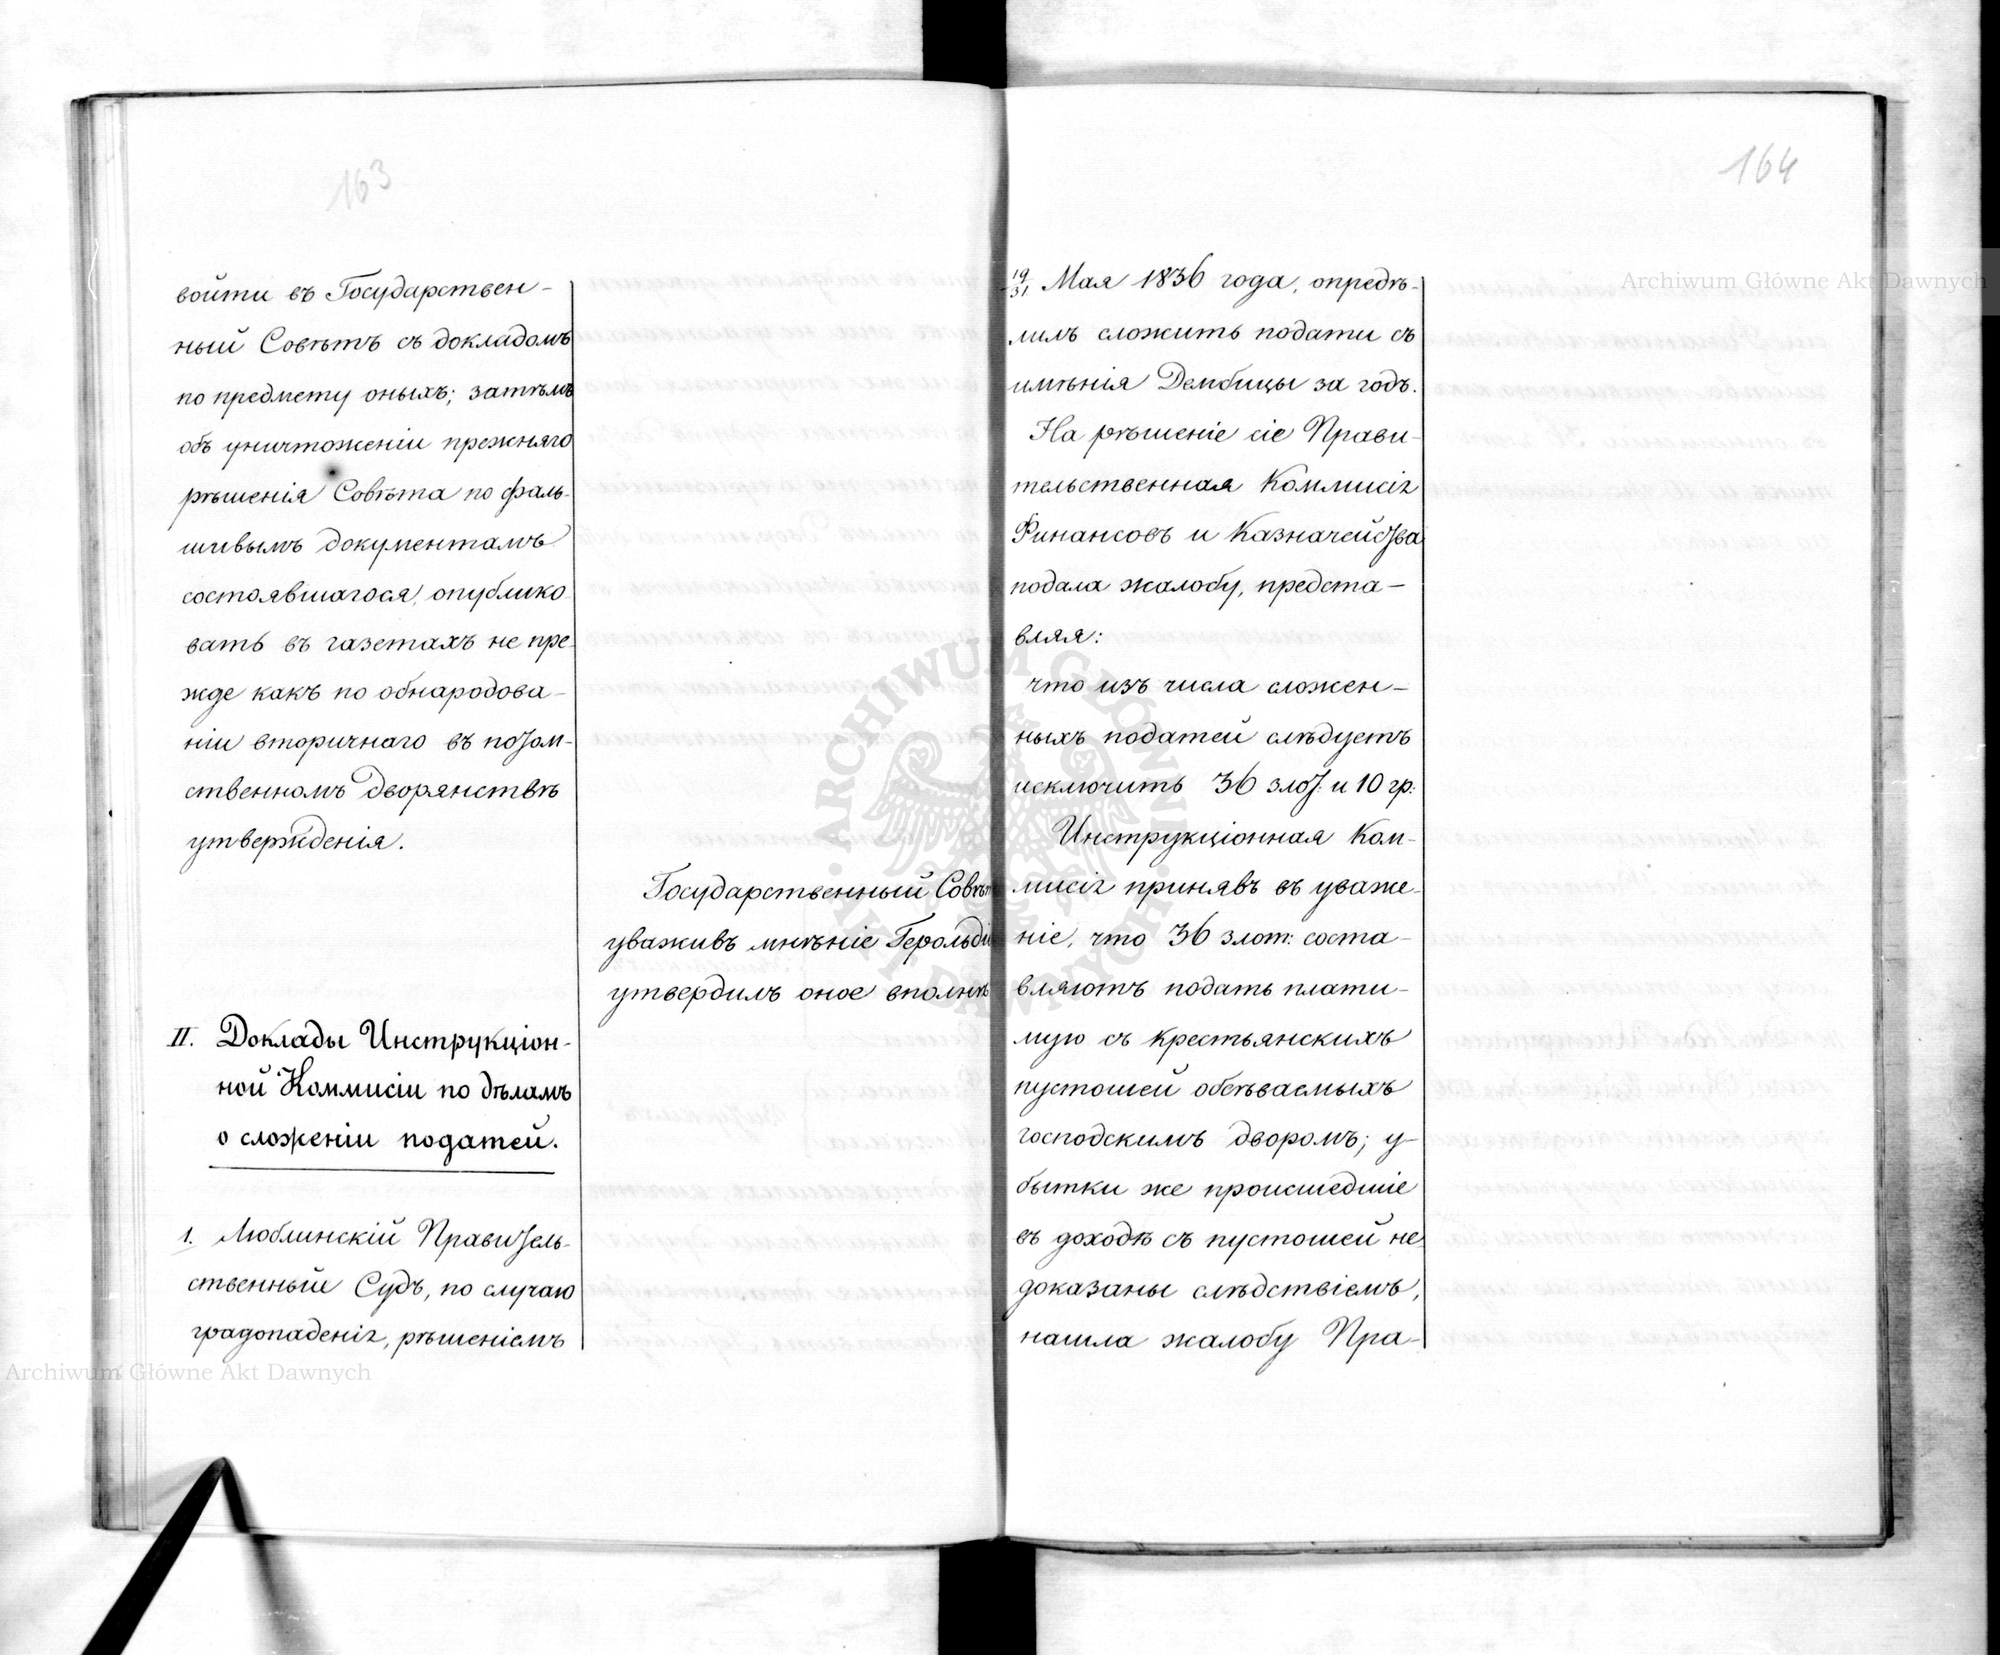 163
войти въ Государствен-
ный Совѣтъ съ докладомъ
по предмету оныхъ; затѣмъ
объ уничтоженіи прежняго
рѣшенія Совѣта по фаль-
шивымъ документамъ
состоявшагося, опублико
вать въ газетахъ не пре-
жде какъ по обнародова-
ніи вторичнаго въ потом-
ственномъ дворянствѣ
утвержденія.
Государственный Совѣтъ
уваживъ мнѣніе Герольдіи
утвердилъ оное вполнѣ
II. Доклады Инструкціон-
ной Коммисіи по дѣламъ
о сложеніи податей.
1. Люблинскій Правитель-
ственный Судъ, по случаю
градопаденія, рѣшеніемъ
164
19/31 Мая 1836 года, опредѣ-
лилъ сложить подати съ
имѣнія Дембицы за годъ.
На рѣшеніе сіе Прави-
тельственная Коммисія
Финансовъ и Казначейства
подала жалобу, предста-
вляя:
что изъ числа сложен-
ныхъ податей слѣдуетъ
исключить 36 злот: и 10 гр:
Инструкціонная Ком-
мисія принявъ въ уваже-
ніе, что 36 злот: соста-
вляютъ подать плати-
мую съ крестьянскихъ
пустошей обсѣваемыхъ
господскимъ дворомъ; у-
бытки же происшедшіе
въ доходѣ съ пустошей не
доказаны слѣдствіемъ,
нашла жалобу Пра-
Archiwum Główne Akt Dawnych
Archiwum Główne Akt Dawnych
ARCHIWUM GŁÓWNE AKT DAWNYCH